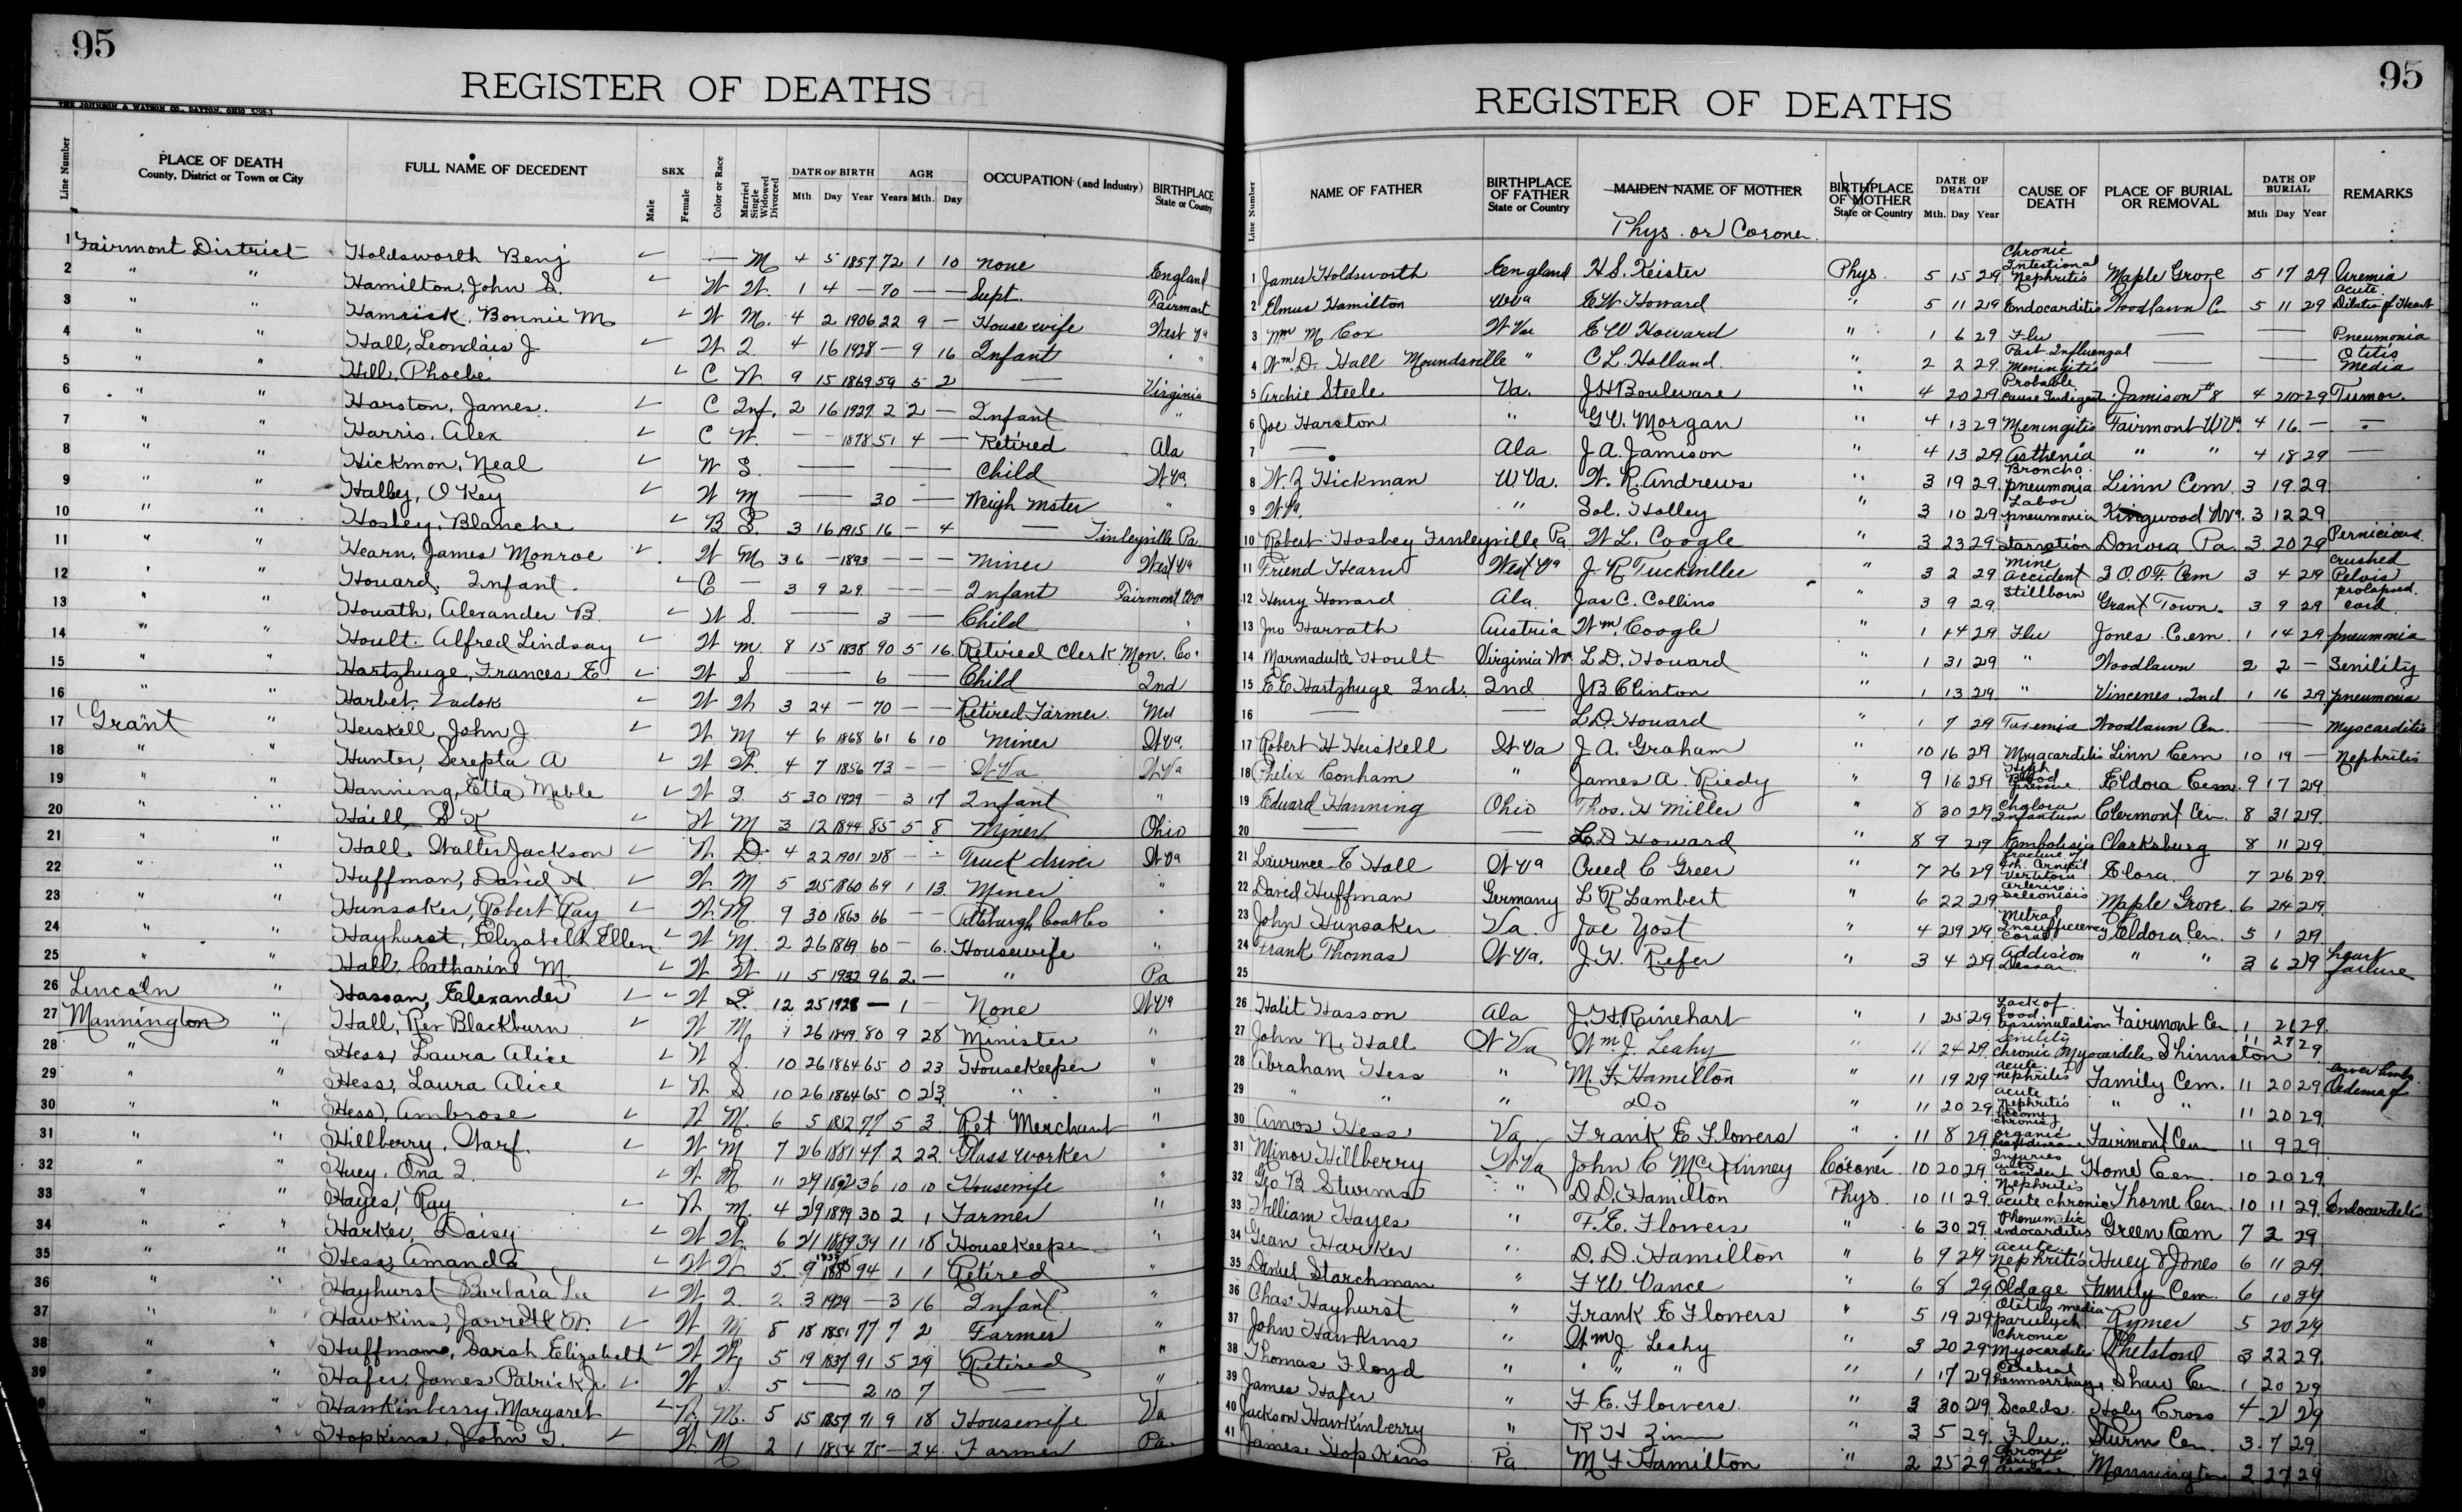 95
REGISTER OF DEATHS
THE JOHNSON & WATSON CO., DAYTON, OHIO
Line Number PLACE OF DEATH County, District or Town or City FULL NAME OF DECEDENT SEX Male Female Color or Race Married Single Widowed Divorced DATE OF BIRTH Mth Day Year AGE Years Mth. Day OCCUPATION (and Industry) BIRTHPLACE State or Country
1 Fairmont District Holdsworth Benj ✓ — M 4 5 1857 72 1 10 none England
2 " " Hamilton, John S. ✓ W W. 1 4 — 70 — — Supt. Fairmont
3 " " Hamrick, Bonnie M ✓ W M. 4 2 1906 22 9 — House wife West Va
4 " " Hall, Leondais J ✓ W I. 4 16 1928 — 9 16 Infant " "
5 " " Hill, Phoebe ✓ C W. 9 15 1869 59 5 2 — Virginia
6 " " Harston, James. ✓ C Inf. 2 16 1927 2 2 — Infant "
7 " " Harris, Alex ✓ C W. — — 1878 51 4 — Retired Ala
8 " " Hickmon, Neal ✓ W S. — — Child W.Va.
9 " " Halley, O Key ✓ W M — 30 — Weigh Mster "
10 " " Hosley, Blanche ✓ B S. 3 16 1915 16 — 4 — Finleyville Pa.
11 " " Hearn, James Monroe ✓ W M 3 6 — 1893 — — — Miner West Va
12 " " Howard, Infant. ✓ C — 3 9 29 — — — Infant Fairmont WVa
13 " " Howath, Alexander B. ✓ W S. — 3 — Child "
14 " " Hoult. Alfred Lindsay ✓ W M. 8 15 1838 90 5 16. Retired Clerk Mon. Co.
15 " " Hartzhuge, Frances E ✓ W S — 6 — Child Ind
16 " " Harbet, Zadok ✓ W W 3 24 — 70 — — Retired Farmer. Md
17 Grant " Heiskell, John J. ✓ W. M 4 6 1868 61 6 10 Miner W.Va.
18 " " Hunter, Serepta A ✓ W W. 4 7 1856 73 — — W.Va W.Va
19 " " Hanning, Etta Meble ✓ W I. 5 30 1929 — 3 17 Infant "
20 " " Haill, S K ✓ W M 3 12 1844 85 5 8 Miner Ohio
21 " " Hall, Walter Jackson ✓ W. D. 4 22 1901 28 — — Truck driver W.Va
22 " " Huffman, David H. ✓ W. M 5 25 1860 69 1 13. Miner "
23 " " Hunsaker, Robert Ray ✓ W. M 9 30 1863 66 — — Pittsburgh Coal Co "
24 " " Hayhurst, Elizabeth Ellen ✓ W M. 2 26 1869 60 — 6. Housewife "
25 " " Hall, Catharine M. ✓ W W 11 5 1932 96 2 — " Pa
26 Lincoln " Hassan, Elexander ✓ ✓ W I. 12 25 1928 — 1 — None W.Va
27 Mannington " Hall, Rev Blackburn ✓ W M, 1 26 1849 80 9 28 Minister "
28 " " Hess, Laura Alice ✓ W S. 10 26 1864 65 0 23 Housekeeper "
29 " " Hess, Laura Alice ✓ W S 10 26 1864 65 0 23 " "
30 " " Hess, Ambrose ✓ W M. 6 5 1852 77 5 3. Ret Merchant "
31 " " Hillberry, Warf. ✓ W M 7 26 1881 47 2 22. Glass worker "
32 " " Huey, Ona I. ✓ W M. 11 29 1892 36 10 10 Housewife "
33 " " Hayes, Ray ✓ W M. 4 29 1899 30 2 1 Farmer "
34 " " Harker, Daisy ✓ W W. 6 21 1889 39 11 18 Housekeeper "
35 " " Hess, Amanda ✓ W W. 5. 9 1835 94 1 1 Retired "
36 " " Hayhurst Barbara Lu ✓ W I. 2 3 1929 — 3 16 Infant. "
37 " " Hawkins, Jarrett N. ✓ W M 8 18 1851 77 7 2 Farmer "
38 " " Huffman, Sarah Elizabeth ✓ W W, 5 19 1837 91 5 29 Retired "
39 " " Hafer, James Patrick Jr. ✓ W S. 5 — 2 10 7 — "
40 " " Hawkinberry, Margaret ✓ W. M. 5 15 1857 71 9 18 Housewife Va
" " Hopkins, John T. ✓ W M 2 1 1854 75 — 24. Farmer Pa.
95
REGISTER OF DEATHS
Line Number NAME OF FATHER BIRTHPLACE OF FATHER State or Country MAIDEN NAME OF MOTHER Phys. or Coroner. BIRTHPLACE OF MOTHER State or Country DATE OF DEATH Mth. Day Year CAUSE OF DEATH PLACE OF BURIAL OR REMOVAL DATE OF BURIAL Mth Day Year REMARKS
1 James Holdsworth England H.S. Keister Phys. 5 15 29 Chronic Intestional Nephritis Maple Grove 5 17 29 Uremia
2 Elmus Hamilton WVa E W. Howard " 5 11 29 Endocarditis Woodlawn Cm 5 11 29 acute Dilation of Heart
3 Wm M Cox W Va E W Howard " 1 6 29 Flu — — Pneumonia
4 Wm. D. Hall Moundsville " C L. Holland. " 2 2 29 Post Influenzal Meningitis — — Otitis Media
5 Archie Steele Va. J.H Bouleware " 4 20 29 Probable cause Indigest. Jamison #8 4 20 29 Tumor.
6 Joe Harston " G.V. Morgan " 4 13 29 Meningitis Fairmont W.Va. 4 16 — —
7 — Ala J. A. Jamison " 4 13 29 Asthenia " " 4 18 29 —
8 W. Z Hickman W Va. W. R. Andrews " 3 19 29. Broncho. pneumonia Linn Cem. 3 19. 29.
9 W.Va. " Sol. Holley " 3 10 29 Labor pneumonia Kingwood W.Va. 3 12 29
10 Robert Hosbey Finleyville Pa. W L. Coogle " 3 23 29 Starvation Donora Pa. 3. 20 29 Pernicious
11 Friend Hearn West Va J. R Tuckwiller " 3 2 29 Mine accident I.O.O.F. Cem 3 4 29 crushed Pelvis
12 Henry Howard Ala. Jas C. Collins " 3 9 29. Stillborn Grant Town. 3 9 29 prolapsed. cord.
13 Jno Harvath Austria Wm. Coogle " 1 14 29 Flu Jones Cem. 1 14 29 pneumonia
14 Marmaduke Hoult Virginia L. D. Howard " 1 31 29 " Woodlawn 2 2 — Senility
15 E E Hartzhuge Ind. Ind J B Clinton " 1 13 29 " Vincenes, Ind 1 16 29 pneumonia
16 — — L.D. Howard " 1 7 29 Toxemia Woodlawn Cem. — Myocarditis
17 Robert H Heiskell W Va J. A. Graham " 10 16 29 Myacardilis Linn Cem 10 19 — Nephritis
18 Phelix Conham " James A. Riedy " 9 16 29 High Blood pressure. Eldora Cem. 9 17 29.
19 Edward Hanning Ohio Thos. H Miller " 8 30 29 Cholora Infantum Clermont Cem. 8 31 29.
20 — — L.D. Howard " 8 9 29 Embolism Clarksburg 8 11 29.
21 Lawrence E Hall W Va Creed C Greer " 7 26 29 fracture of Elora. 7 26 29.
22 David Huffman Germany L R Lambert " 6 22 29 Arterio Maple Grove. 6 24 29.
23 John Hunsaker Va. Joe Yost " 4 29 29. Mitral Insufficiency Eldora Cem. 5 1 29.
24 Frank Thomas W Va. J. H. Refer " 3 4 29 Addision " " 3 6 29 heart failure
25
26 Halit Hasson Ala J. H. Rinehart " 1 25 29. Lack of food assimulation Fairmont Cem 1 26 29.
27 John N. Hall W Va Wm. J. Leahy " 11 24 29. Senility chronic Myocardites Shinnston 11 27 29
28 Abraham Hess " M. F. Hamilton " 11 19 29 acute nephritis Family Cem. 11 20 29 Oedema of lower limbs.
29 " " " Do " 11 20 29. acute nephritis " " 11 20 29.
30 Amos Hess Va. Frank E Flowers " 11 8 29 chronic organic heart disease Fairmont Cem 11 9 29.
31 Minor Hillberry W Va John C McKinney Coroner. 10 20 29. Injuries auto accident Home Cem. 10 20 29.
32 Geo B Sturms " D.D. Hamilton Phys. 10 11 29. Nephritis acute chronic Thorne Cem. 10 11 29. Endocarditis
33 William Hayes " F. E. Flowers " 6 30 29. Rheumatic endocarditis Green Cem 7 2 29
34 Gean Harker " D. D. Hamilton " 6 9 29 acute Nephritis Huey & Jones 6 11 29.
35 Daniel Starchman " F W. Vance " 6 8 29. Oldage Family Cem. 6 10 29
36 Chas Hayhurst " Frank E Flowers " 5 19 29 Otetes media Gymer 5 20 29
37 John Hawkins " Wm J. Leahy " 3 20 29 Chronic Myocardites Whetstone 3 22 29.
38 Thomas Floyd " " " " 1 17 29 Cerebral hemmorrhage. Shaw Cem. 1 20 29
39 James Hafer " F E. Flowers. " 3 30 29. Scalds. Holy Cross 4 2 29
40 Jackson Hawkinberry " R H Zinn " 3 5 29. Flu. Sturm Cem. 3. 7 29.
41 James Hopkins Pa M F Hamilton " 2 25 29. Chronic Bright disease Mannington 2 27 29